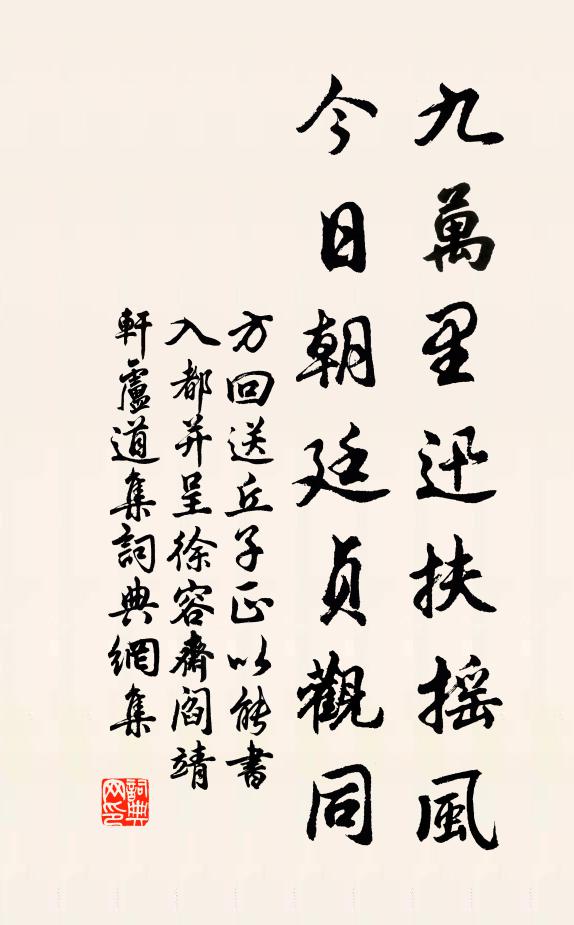 九萬里迅扶摇風
今日朝廷貞觀同
方回送丘子正以能書
入都并呈徐容齋閻靖
軒盧道集詞典網集
詞典
网印